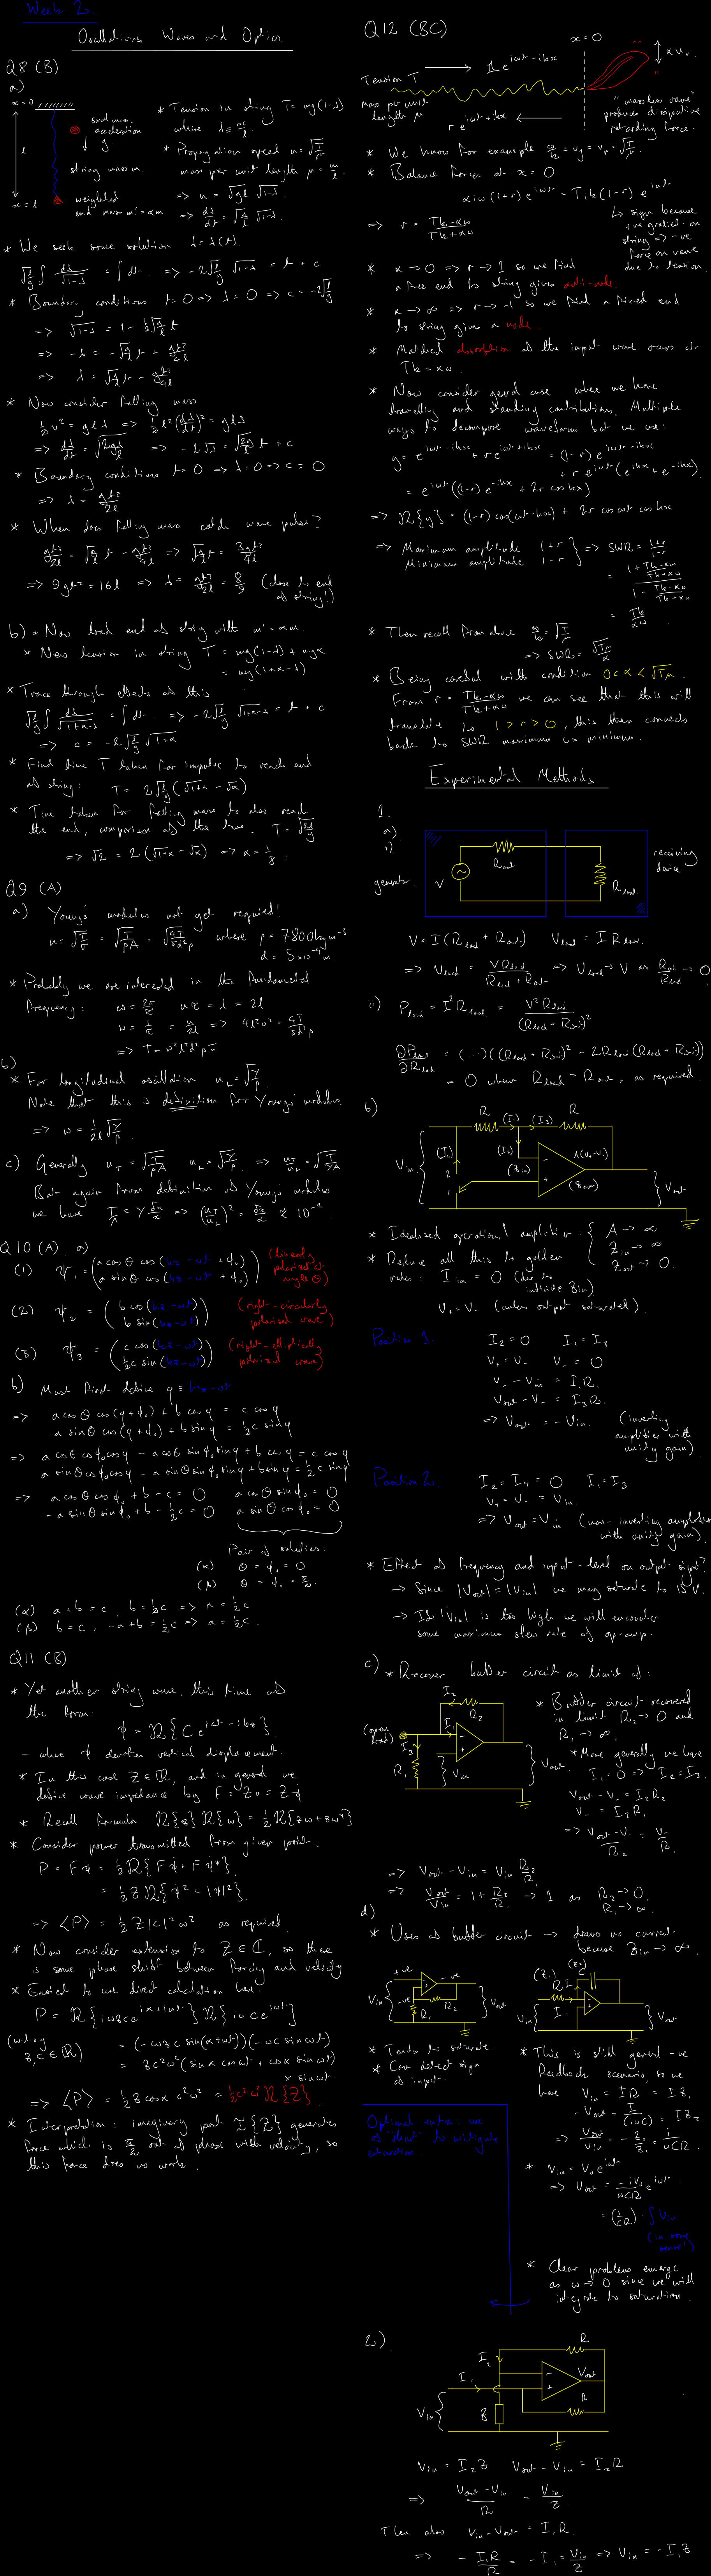 Week 2.
Oscillations Waves and Optics
Q8 (B)
a)
x=0
small mass,
acceleration
g.
l
string mass m.
x=l
weighted
end mass m'=αm
* Tension in string T = mg(1-λ)
where λ ≡ x/l
* Propagation speed u = √(T/μ)
mass per unit length μ = m/l.
=> u = √(gl) √(1-λ)
=> dλ/dt = √(g/l) √(1-λ).
* We seek some solution λ = λ(t).
√(l/g) ∫ dλ/√(1-λ) = ∫dt. => -2√(l/g) √(1-λ) = t + c
* Boundary conditions t=0 => λ=0 => c = -2√(l/g)
=> √(1-λ) = 1 - ½√(g/l) t
=> -λ = -√(g/l) t + gt²/4l
=> λ = √(g/l) t - gt²/4l
* Now consider falling mass
½v² = glλ => ½l²(dλ/dt)² = glλ
=> dλ/dt = √(2gλ/l) => -2√λ = √(2g/l) t + c
* Boundary conditions t=0 => λ=0 => c=0
=> λ = gt²/2l
* When does falling mass catch wave pulse?
gt²/2l = √(g/l) t - gt²/4l => √(g/l) t = 3gt²/4l
=> 9gt² = 16l => λ = gt²/2l = 8/9 (close to end
of string!)
b) * Now load end of string with m'=αm.
* New tension in string T = mg(1-λ) + mgα
= mg(1+α-λ)
* Trace through effects of this
√(l/g) ∫ dλ/√(1+α-λ) = ∫dt. => -2√(l/g) √(1+α-λ) = t + c
=> c = -2√(l/g) √(1+α)
* Find time T taken for impulse to reach end
of string: T = 2√(l/g) (√(1+α) - √α)
* Time taken for falling mass to also reach
the end, comparison of the two. T = √(2l/g)
=> √2 = 2(√(1+α) - √α) => α = 1/8.
Q9 (A)
a) Young's modulus not yet required!
u = √(T/μ) = √(T/ρA) = √(4T/πd²ρ) where ρ = 7800 kg m⁻³
d = 5×10⁻⁴ m.
* Probably we are interested in the fundamental
frequency: ω = 2π/τ uτ = λ = 2l
=> T = ω²l²d²ρπ
b)
* For longitudinal oscillation u_L = √(Y/ρ).
Note that this is definition for Young's modulus.
=> ω = 1/2l √(Y/ρ)
c) Generally u_T = √(T/ρA) u_L = √(Y/ρ). => u_T/u_L = √(T/YA)
But again from definition of Young's modulus
we have T/A = Y δx/x => (u_T/u_L)² = δx/x ≈ 10⁻².
Q10 (A) a)
(1) Ψ₁ = (a cosθ cos(kz-ωt+φ₀)
a sinθ cos(kz-ωt+φ₀))
(linearly
polarised at
angle θ)
(2) Ψ₂ = (b cos(kz-ωt)
b sin(kz-ωt))
(right-circularly
polarised wave)
(3) Ψ₃ = (c cos(kz-ωt)
½c sin(kz-ωt))
(right-elliptically
polarised wave)
b) Must first define φ ≡ kz-ωt
=> a cosθ cos(φ+φ₀) + b cosφ = c cosφ
a sinθ cos(φ+φ₀) + b sinφ = ½c sinφ
=> a cosθ cosφ₀ cosφ - a cosθ sinφ₀ sinφ + b cosφ = c cosφ
a sinθ cosφ₀ cosφ - a sinθ sinφ₀ sinφ + b sinφ = ½c sinφ
=> a cosθ cosφ₀ + b - c = 0 a cosθ sinφ₀ = 0
-a sinθ sinφ₀ + b - ½c = 0 a sinθ cosφ₀ = 0
Pair of solutions:
(α) θ = φ₀ = 0
(β) θ = φ₀ = π/2.
(α) a+b=c, b=½c => a=½c
(β) b=c, -a+b=½c => a=½c.
Q11 (B)
* Yet another string wave, this time of
the form:
ψ = R{C e^{iωt-ikz}}
- where ψ denotes vertical displacement.
* In this case Z∈R, and in general we
define wave impedance by F = Zv = Zψ̇
* Recall formula R{z}R{w} = ½R{zw+zw*}
* Consider power transmitted from given point.
P = Fψ̇ = ½R{Fψ̇ + Fψ̇*}
= ½Z R{ψ̇² + |ψ̇|²}.
=> <P> = ½Z|C|²ω² as required.
* Now consider extension to Z∈C, so there
is some phase shift between forcing and velocity
* Easiest to use direct calculation here.
P = R{iωzc e^{iα+iωt}} R{iωc e^{iωt}}
(w.l.o.g
z,c∈R)
= (-ωzc sin(α+ωt))(-ωc sinωt)
= zc²ω²(sinα cosωt + cosα sinωt)
× sinωt
=> <P> = ½z cosα c²ω² = ½c²ω² R{Z}
* Interpretation: imaginary part I{Z} generates
force which is π/2 out of phase with velocity, so
this force does no work.
Q12 (BC)
x=0
Tension T
1 e^{iωt-ikx}
mass per unit
length μ
r e^{iωt+ikx}
"massless vane"
produces dissipative
retarding force.
* We know for example ω/k = v_g = v_p = √(T/μ).
* Balance forces at x=0
αiω(1+r)e^{iωt} = Tik(1-r)e^{iωt}
=> r = (Tk-αω)/(Tk+αω)
↳ sign because
+ve gradient on
string => -ve
force on vane
due to tension.
* α→0 => r→1 so we find
a free end to string gives anti-node.
* α→∞ => r→-1 so we find a fixed end
to string gives a node.
* Matched absorption of the input wave occurs at
Tk = αω.
* Now consider general case where we have
travelling and standing contributions. Multiple
ways to decompose waveform but we use:
y = e^{iωt-ikx} + r e^{iωt+ikx} = (1-r)e^{iωt-ikx}
+ r e^{iωt}(e^{ikx}+e^{-ikx}).
= e^{iωt}((1-r)e^{-ikx} + 2r cos kx)
=> R{y} = (1-r)cos(ωt-kx) + 2r cosωt cos kx
=> Maximum amplitude 1+r
Minimum amplitude 1-r
=> SWR = (1+r)/(1-r)
= (1 + (Tk-αω)/(Tk+αω))/(1 - (Tk-αω)/(Tk+αω))
= Tk/αω
* Then recall from above ω/k = √(T/μ)
=> SWR = √(Tμ)/α
* Being careful with condition 0<α<√(Tμ).
From r = (Tk-αω)/(Tk+αω) we can see that this will
translate to 1>r>0, this then connects
back to SWR maximum vs minimum.
Experimental Methods
1.
a)
i)
generator
V
R_out
R_load
receiving
device
V = I(R_load + R_out) V_load = I R_load.
=> V_load = V R_load/(R_load + R_out) => V_load → V as R_out/R_load → 0
ii) P_load = I²R_load = V²R_load/(R_load+R_out)²
∂P_load/∂R_load = (...)((R_load+R_out)² - 2R_load(R_load+R_out))
= 0 when R_load = R_out, as required.
b)
R (I₁) (I₃) R
V_in
(I₄)
2
1
(I₂)
(Z_in)
A(v₊-v₋)
(Z_out)
V_out
* Idealised operational amplifier: { A→∞
Z_in→∞
Z_out→0.
* Reduce all this to golden
rules: I_in = 0 (due to
infinite Z_in)
V₊ = V₋ (unless output saturated).
Position 1.
I₂=0 I₁=I₃
V₊=V₋ V₋=0
V₋-V_in = I₁R.
V_out-V₋ = I₃R.
=> V_out = -V_in. (inverting
amplifier with
unity gain)
Position 2.
I₂=I₄=0 I₁=I₃
V₊=V₋=V_in.
=> V_out=V_in (non-inverting amplifier
with unity gain)
* Effect of frequency and input-level on output signal?
→ Since |V_out|=|V_in| we may saturate to 15 V.
→ If |V̇_in| is too high we will encounter
some maximum slew rate of op-amp.
c) * Recover buffer circuit as limit of:
I₂
R₂
(open
load)
I₁
I₃
R₁
V_in
V_out
* Buffer circuit recovered
in limit R₂→0 and
R₁→∞.
* More generally we have
I₁=0 => I₂=I₃.
V_out-V₋ = I₂R₂
V₋ = I₃R₁
=> (V_out-V₋)/R₂ = V₋/R₁
=> V_out-V_in = V_in R₂/R₁
=> V_out/V_in = 1 + R₂/R₁ → 1 as R₂→0
R₁→∞.
d)
* Uses of buffer circuit → draws no current
because Z_in→∞.
+ve
-ve
V_in
-ve
R₁
R₂
V_out
* Tends to saturate.
* Can detect sign
of input.
(Z₁) (Z₂)
R I C
V_in
I
V_out
* This is still general -ve
feedback scenario, so we
have V_in = IR = IZ₁
-V_out = I/(iωC) = IZ₂
=> V_out/V_in = -Z₂/Z₁ = i/ωCR
* V_in = V₀e^{iωt}
=> V_out = -iV₀/ωCR e^{iωt}
= (1/CR)·∫V_in
* Clear problems emerge
as ω→0 since we will
integrate to saturation.
2)
R
I₂
I₁
V_out
R
V_in
Z
V_in = I₂Z V_out-V_in = I₂R
=> (V_out-V_in)/R = V_in/Z
Then also V_in-V_out = I₁R.
=> -I₁R/R = -I₁ = V_in/Z => V_in = -I₁Z